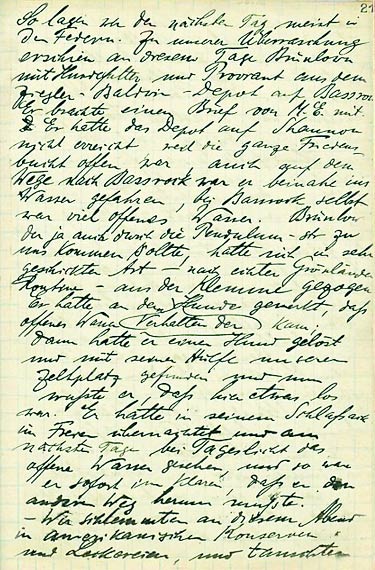 21
So lagen wir den nächsten Tag meist in
den Federn. Zu unserer Überraschung
erschien an diesem Tage Brünlow
mit Hundefutter und Proviant aus dem
Ziegler-Baldwin-Depot auf Bassrock
Er brachte einen Brief von M.E. mit.
Er hatte das Depot auf Shannon
nicht erreicht weil die ganze Friedens
bucht offen war, auch auf dem
Wege nach Bassrock war er beinahe ins
Wasser gefahren, bei Bassrock selbst
war viel offenes Wasser. Brünlow
der ja auch durch die Pendulum-Str zu
uns kommen sollte, hatte sich in sehr
geschickter Art - nach echter Grönländer
Routine - aus der Klemme gezogen
Er hatte an dem Hunde gemerkt, daß
offenes Wasser Verhalten der kam,
dann hatte er einen Hund gelöst
und mit seiner Hülfe unseren
Zeltplatz gefunden und nun
wußte er, daß hier etwas los
war. Er hatte in seinem Schlafsack
im Freien übernachtet und am
nächsten Tage bei Tageslicht das
offene Wasser gesehen, und so war
er sofort im Klaren, daß er den
anderen Weg herum mußte.
- Wir schlemmten an diesem Abend
in amerikanischen Konserven
und Leckereien, und tauschten